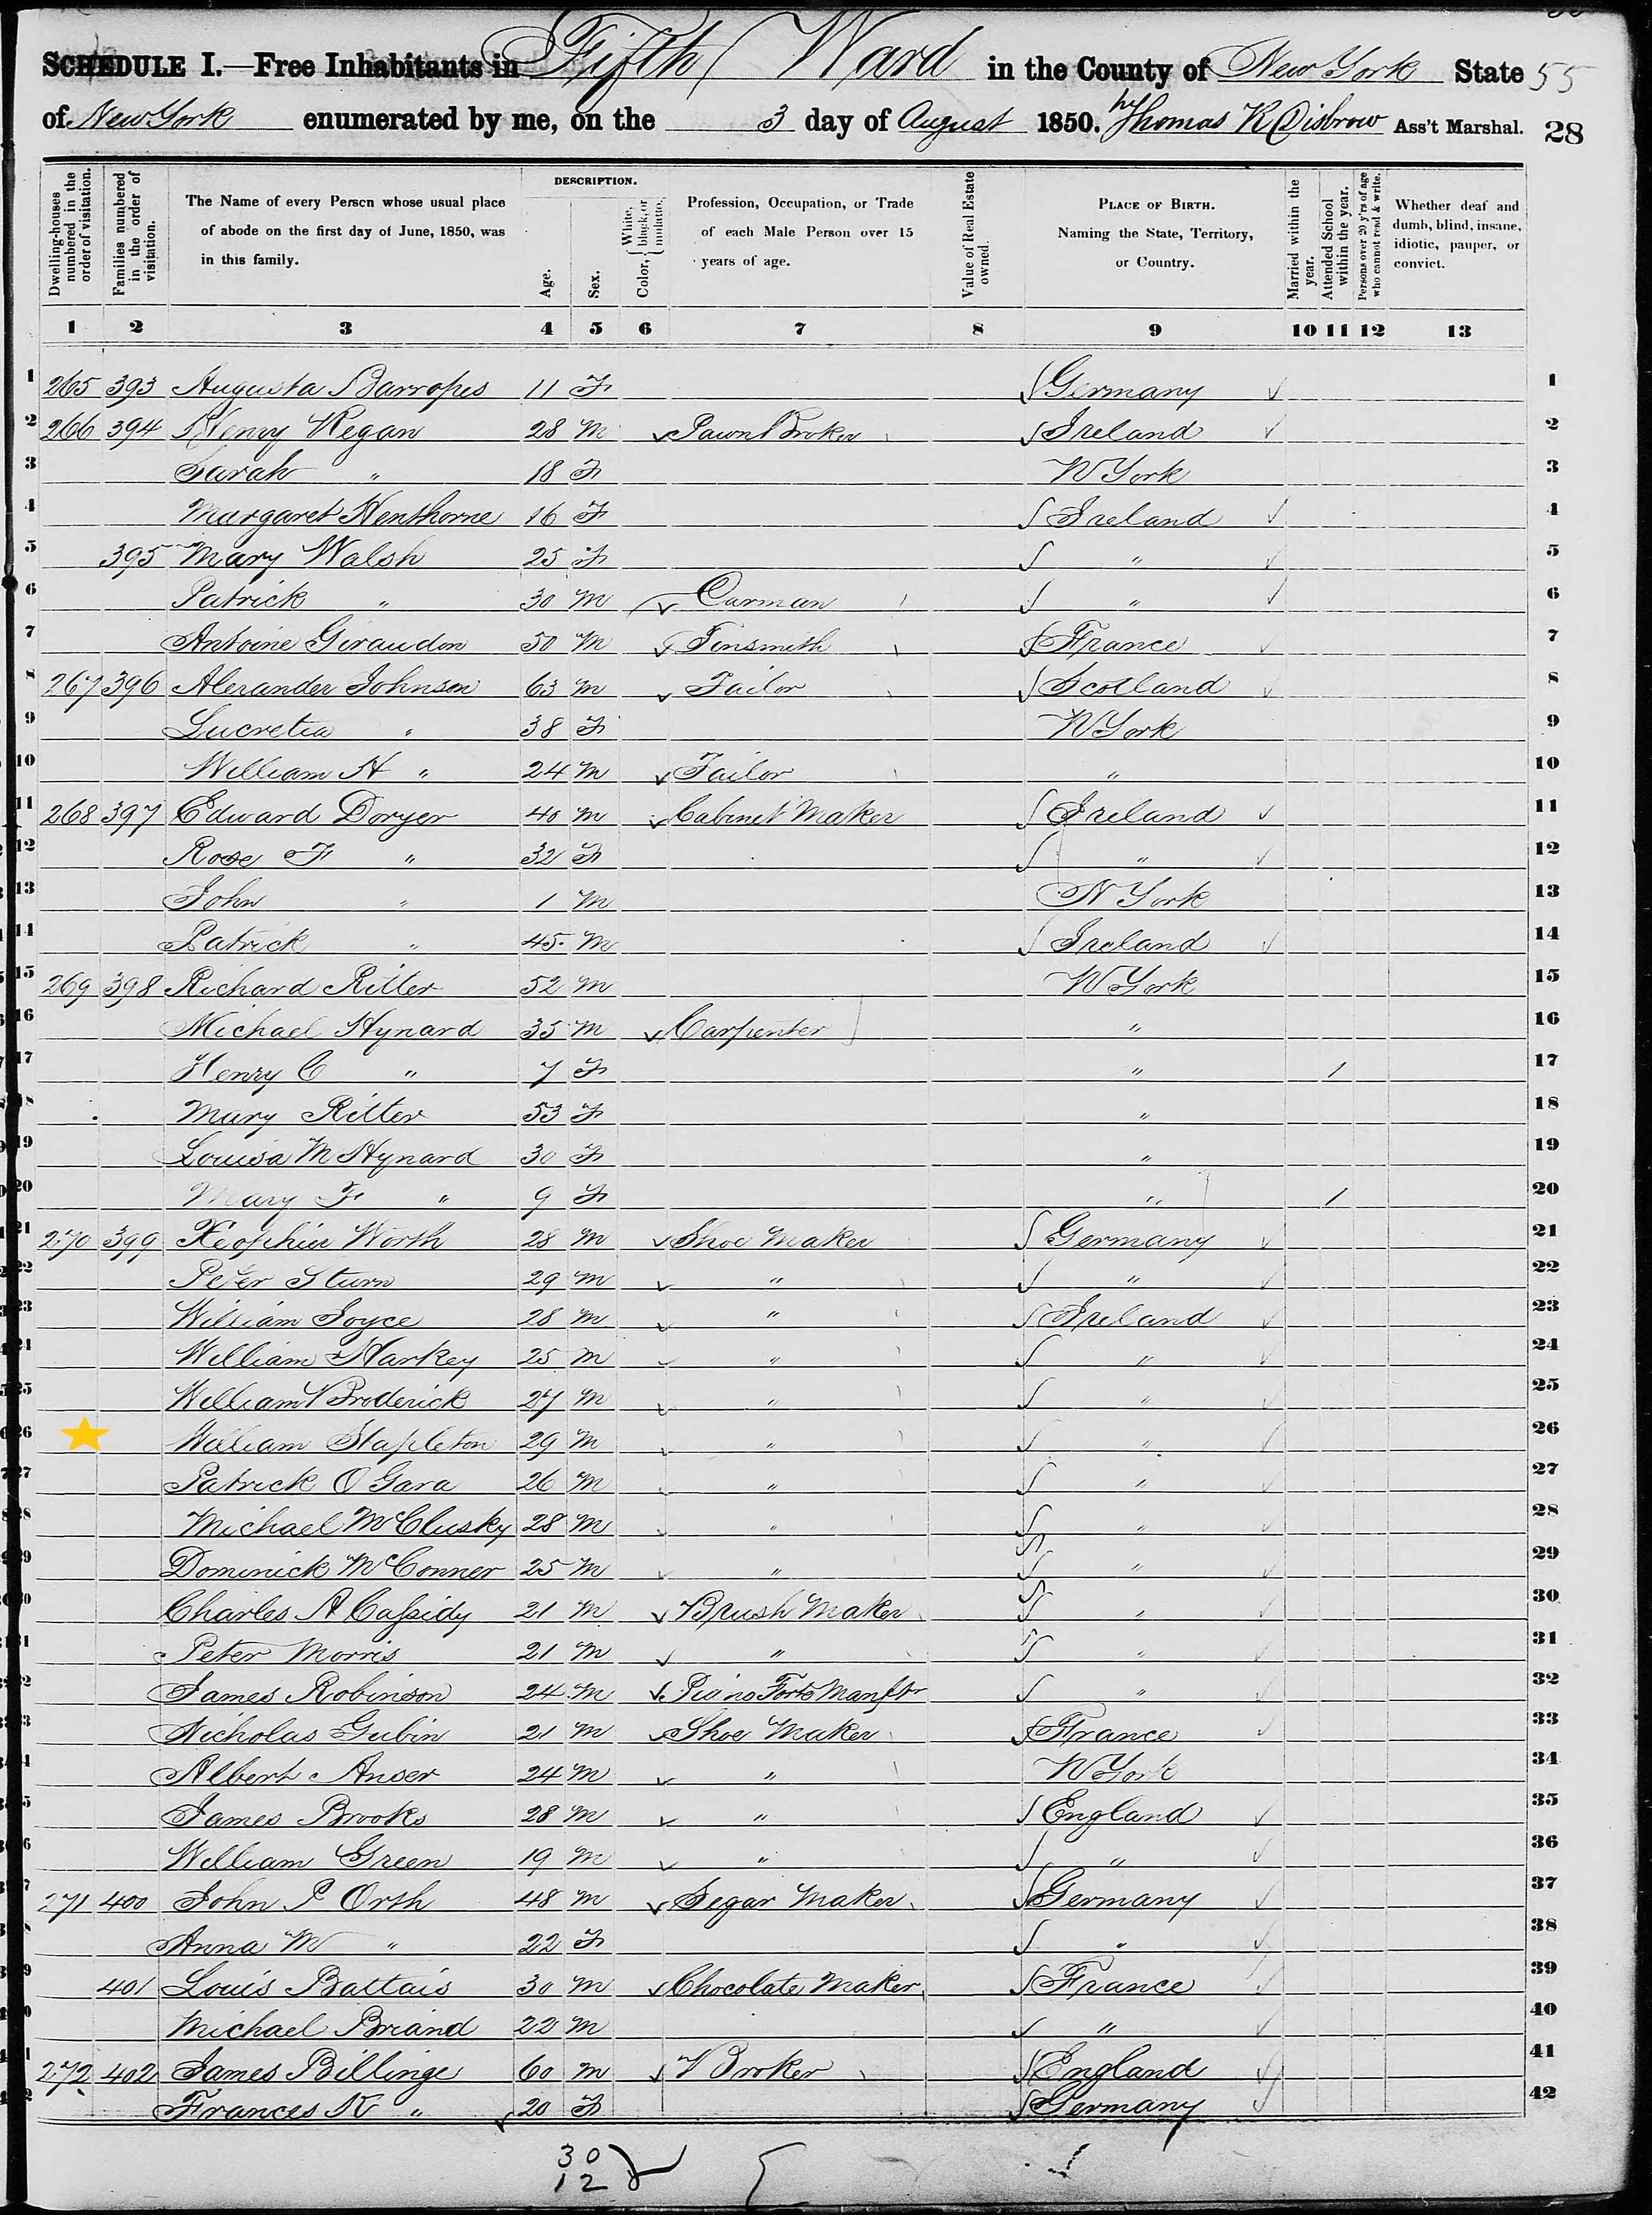 SCHEDULE I.—Free Inhabitants in Fifth Ward in the County of New York State 55
of New York enumerated by me, on the 3 day of August 1850. by Thomas K Disbrow Ass't Marshal. 28
Dwelling-houses numbered in the order of visitation.
Families numbered in the order of visitation.
The Name of every Person whose usual place of abode on the first day of June, 1850, was in this family.
DESCRIPTION.
Age.
Sex.
Color, { White, black, or mulatto.
Profession, Occupation, or Trade of each Male Person over 15 years of age.
Value of Real Estate owned.
PLACE OF BIRTH. Naming the State, Territory, or Country.
Married within the year.
Attended School within the year.
Persons over 20 y'rs of age who cannot read & write.
Whether deaf and dumb, blind, insane, idiotic, pauper, or convict.
1 2 3 4 5 6 7 8 9 10 11 12 13
1 265 393 Augusta 11 F Germany 1
2 266 394 Henry Regan 28 M Pawn Broker Ireland 2
3 Sarah " 18 F N York 3
4 Margaret Henthorne 16 F Ireland 4
5 395 Mary Walsh 25 F " 5
6 Patrick " 30 M Carman " 6
7 Antoine Giraudon 50 M Tinsmith France 7
8 267 396 Alexander Johnson 63 M Tailor Scotland 8
9 Lucretia " 38 F N York 9
10 William H " 24 M Tailor " 10
11 268 397 Edward Doryer 40 M Cabinet Maker Ireland 11
12 Rose F " 32 F " 12
13 John " 1 M N York 13
14 Patrick " 45 M Ireland 14
15 269 398 Richard Ritter 52 M N York 15
16 Michael Hynard 35 M Carpenter " 16
17 Henry C " 7 F " 1 17
18 Mary Ritter 53 F " 18
19 Louisa M Hynard 30 F " 19
20 Mary F " 9 F " 1 20
21 270 399 Worth 28 M Shoe Maker Germany 21
22 Peter Sturn 29 M " " 22
23 William Joyce 28 M " Ireland 23
24 William Harkey 25 M " " 24
25 William Broderick 27 M " " 25
26 William Stapleton 29 M " " 26
27 Patrick O Gara 26 M " " 27
28 Michael McClusky 28 M " " 28
29 Dominick McConner 25 M " " 29
30 Charles A Cassidy 21 M Brush Maker " 30
31 Peter Morris 21 M " " 31
32 James Robinson 24 M Piano Forte Manftr " 32
33 Nicholas Gubin 21 M Shoe Maker France 33
34 Albert Anser 24 M " N York 34
35 James Brooks 28 M " England 35
36 William Green 19 M " " 36
37 271 400 John P Orth 48 M Segar Maker Germany 37
38 Anna M " 22 F " 38
39 401 Louis Battais 30 M Chocolate Maker France 39
40 Michael Briand 22 M " 40
41 272 402 James Billinge 60 M Broker England 41
42 Frances K " 20 F Germany 42
30
12